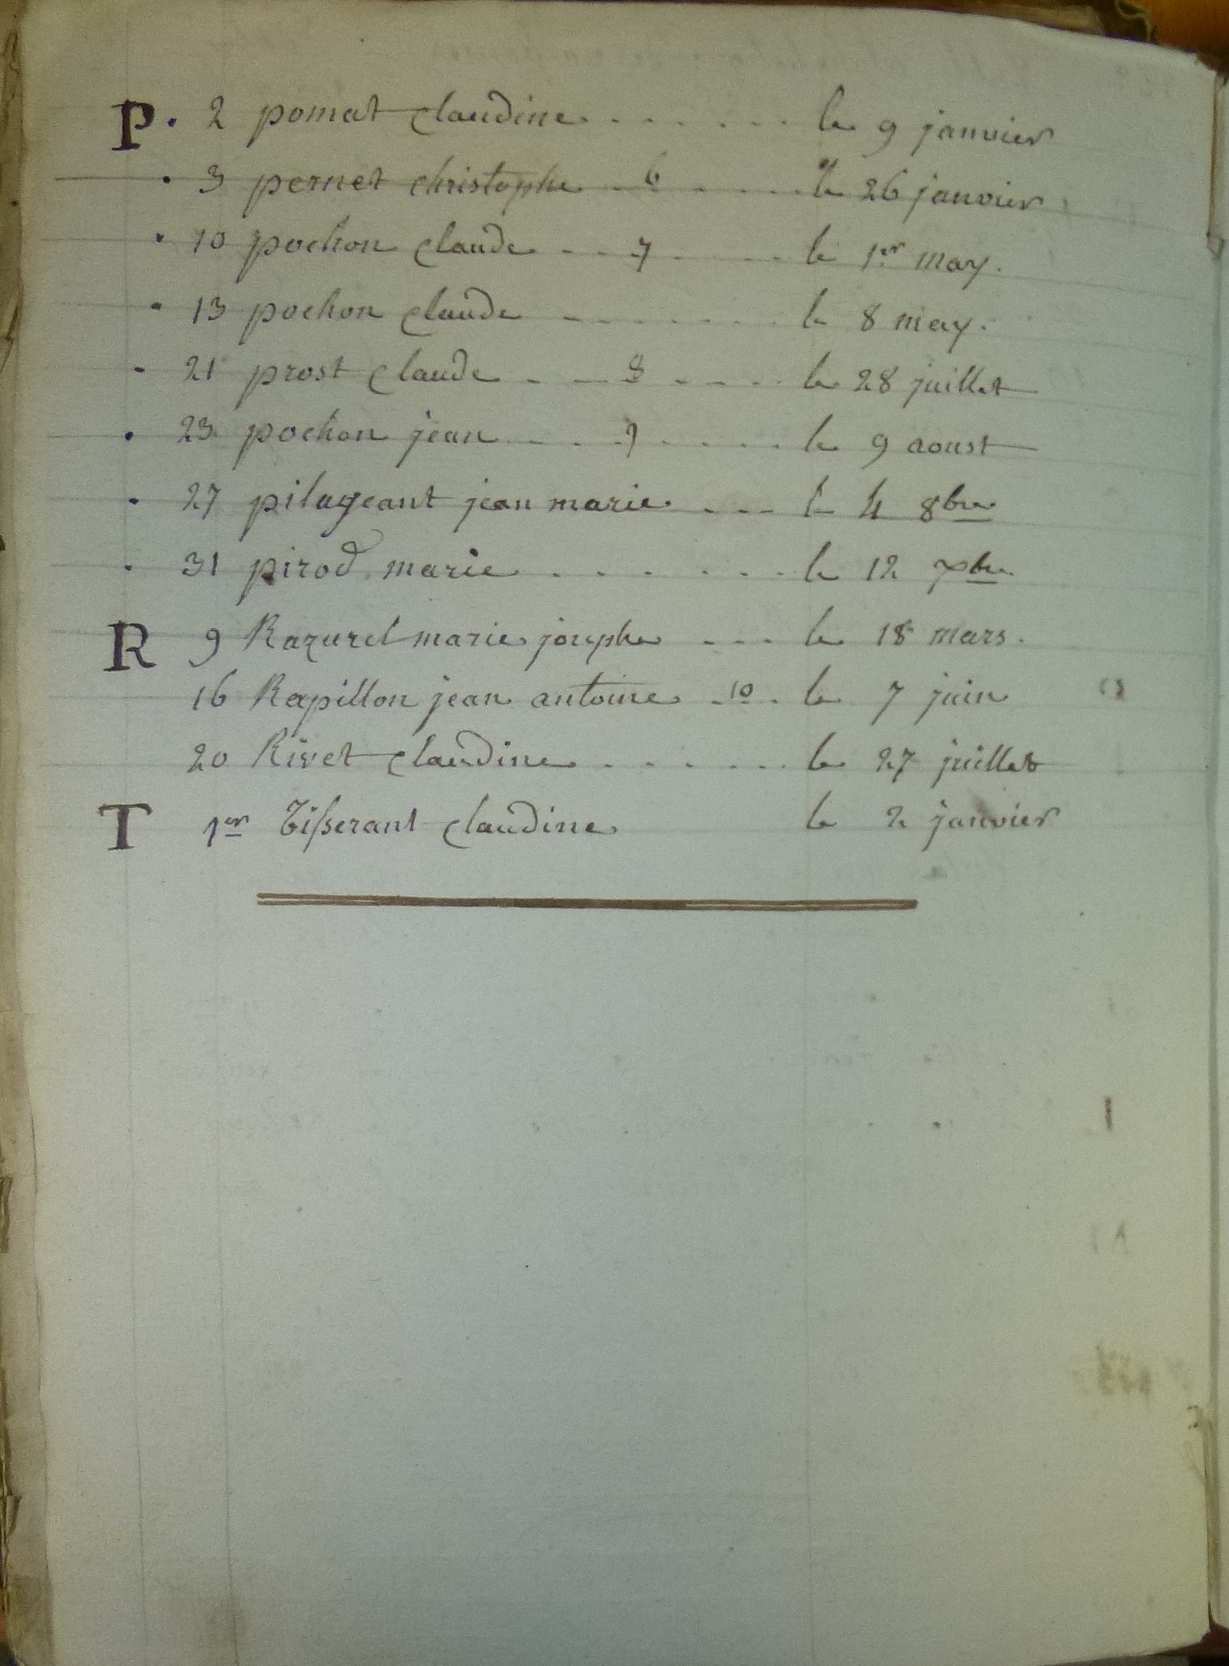 P . 2 pomat claudine . . . . . . . le 9 janvier
. 3 pernet christophe . 6 . . . . le 26 janvier
. 10 pochon claude . . . 7 . . . . le 1er may.
. 13 pochon claude . . . . . . . le 8 may.
. 21 prost claude . . . 8 . . . . le 28 juillet
. 23 pochon jean . . . 9 . . . . le 9 aoust
. 27 pilageant jean marie . . . . le 4 8bre
. 31 pirod marie . . . . . . . le 12 xbre
R 9 Razurel marie josephe . . . le 18 mars.
16 Rapillon jean antoine . 10 . le 7 juin
20 Rivet claudine . . . . . . le 27 juillet
T 1er Tisserant claudine le 2 janvier